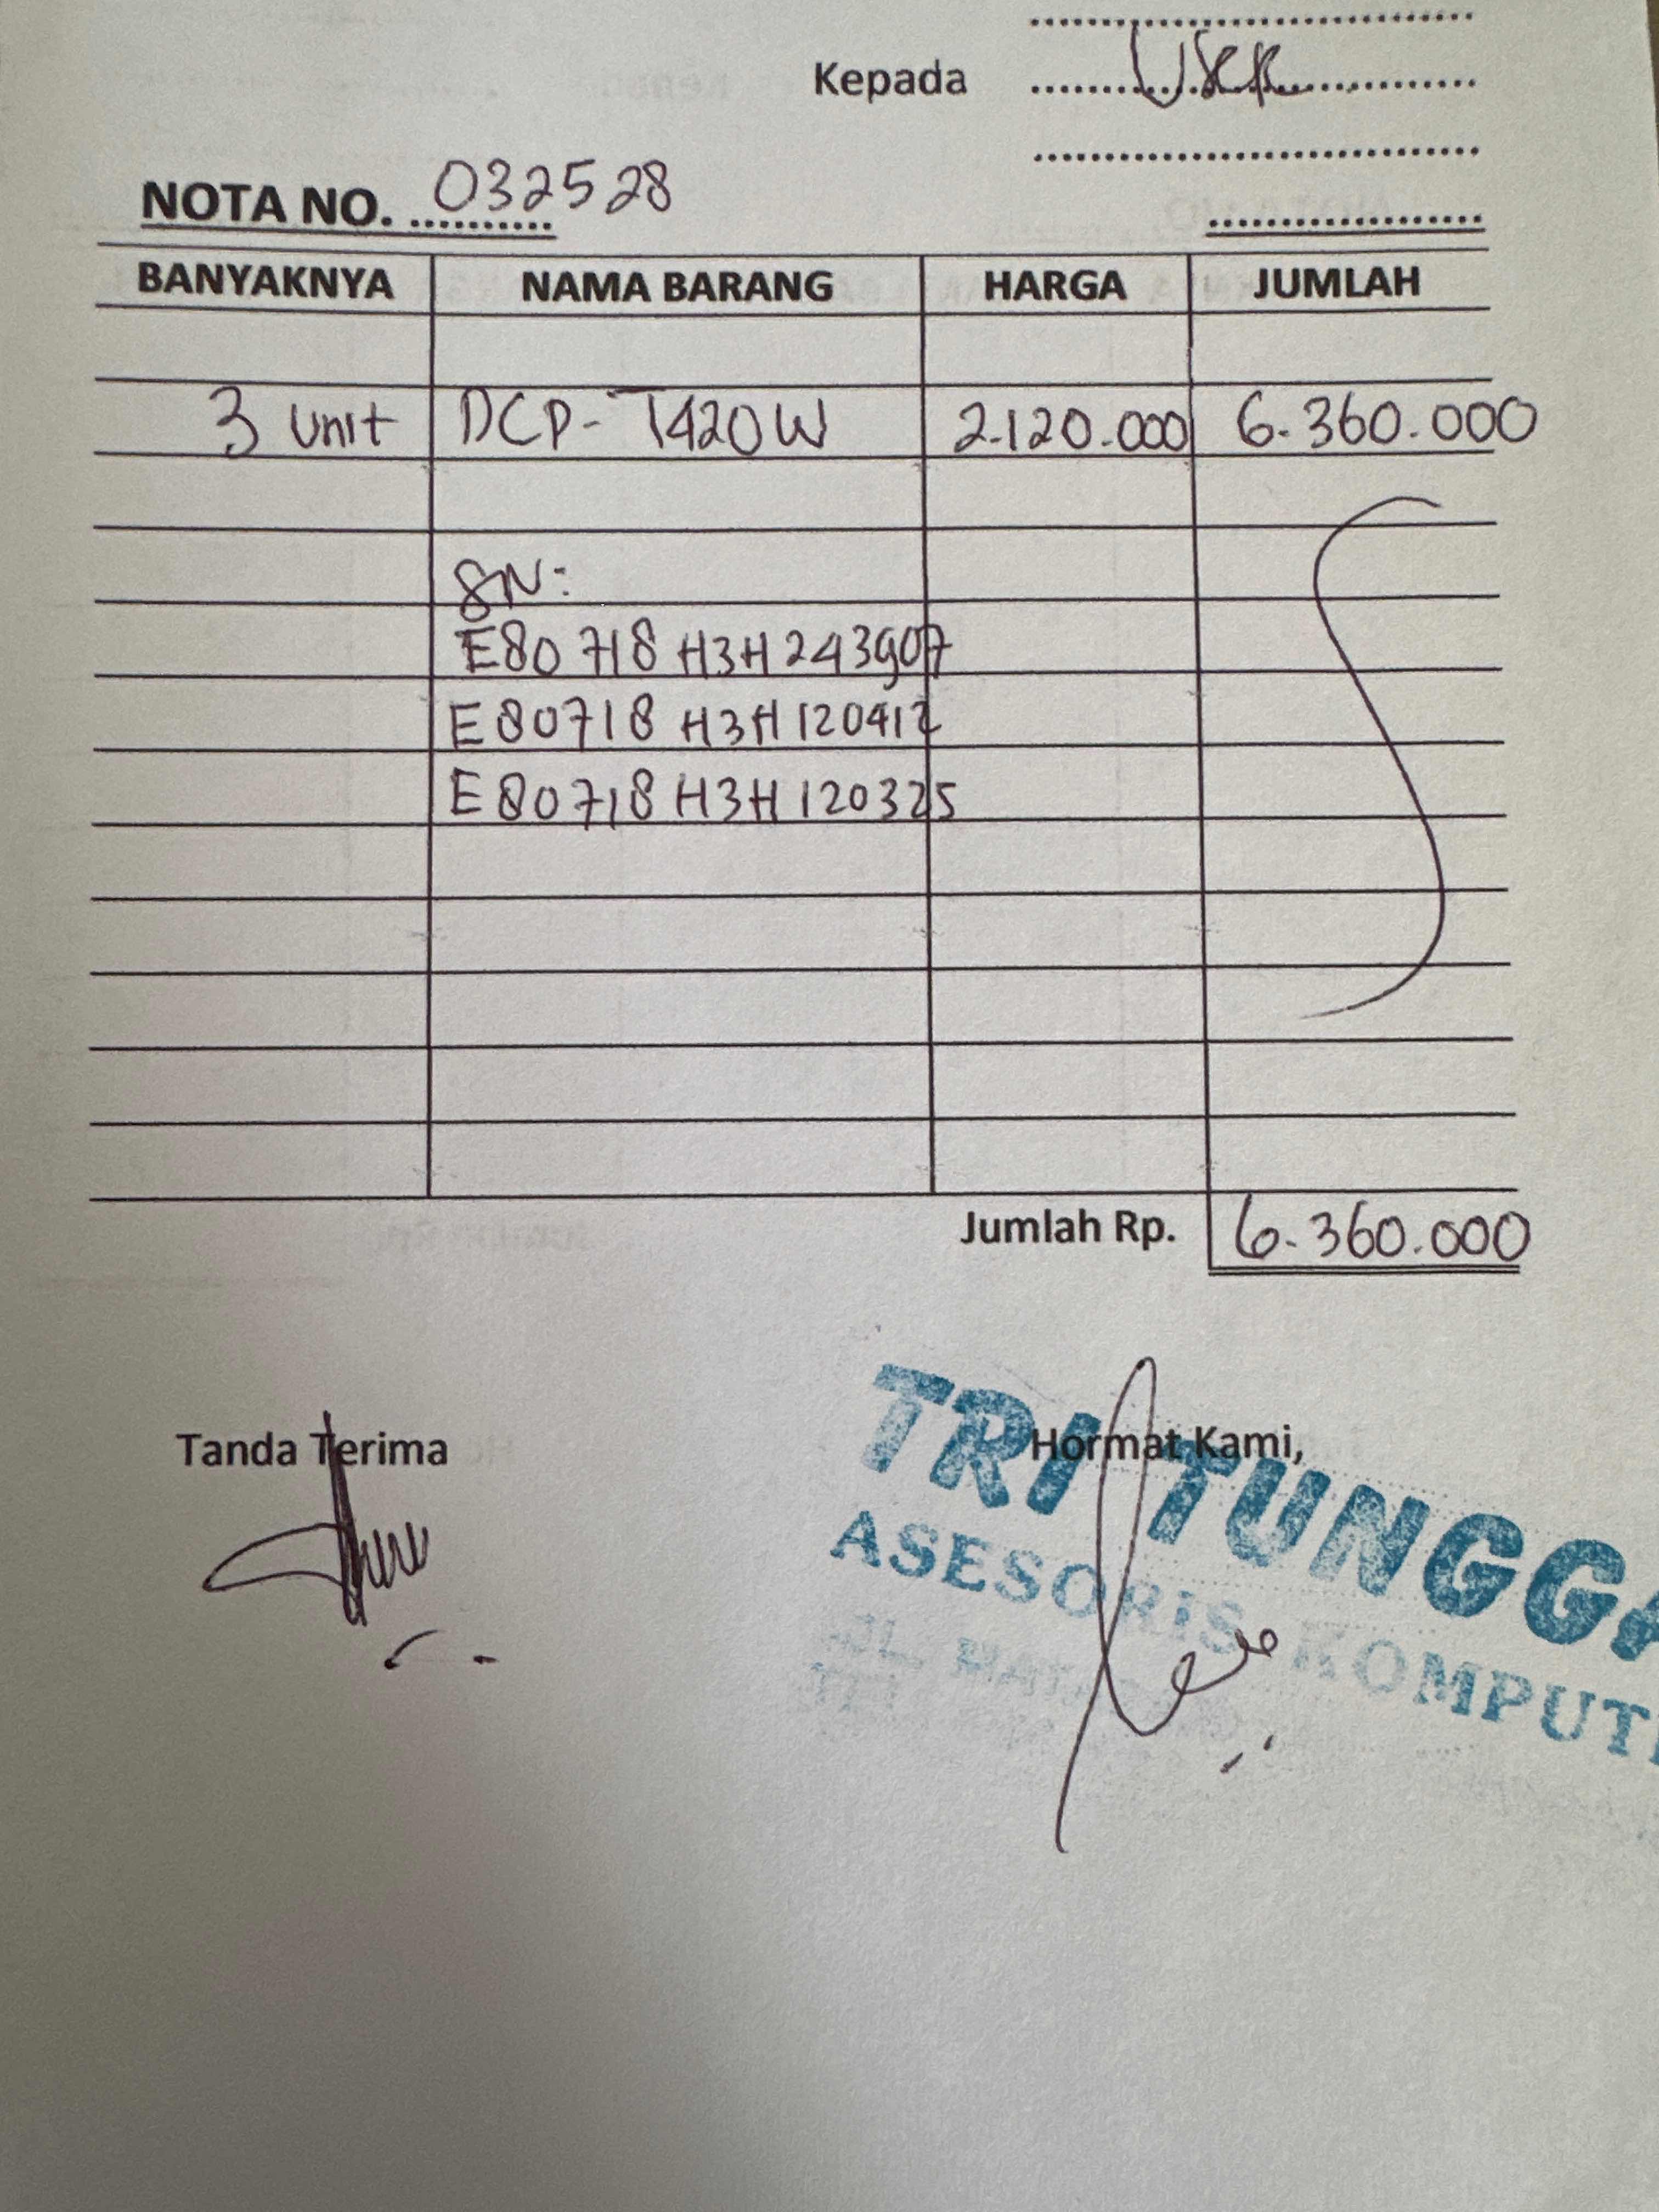 Kepada
NOTA NO. 032528
BANYAKNYA NAMA BARANG HARGA JUMLAH
3 unit DCP-T420W 2.120.000 6.360.000
SN:
E80718H3H243907
E80718H3H120412
E80718H3H120325
Jumlah Rp. 6.360.000
Tanda Terima Hormat Kami,
TRI TUNGGA
ASESORIS KOMPUT
JL.